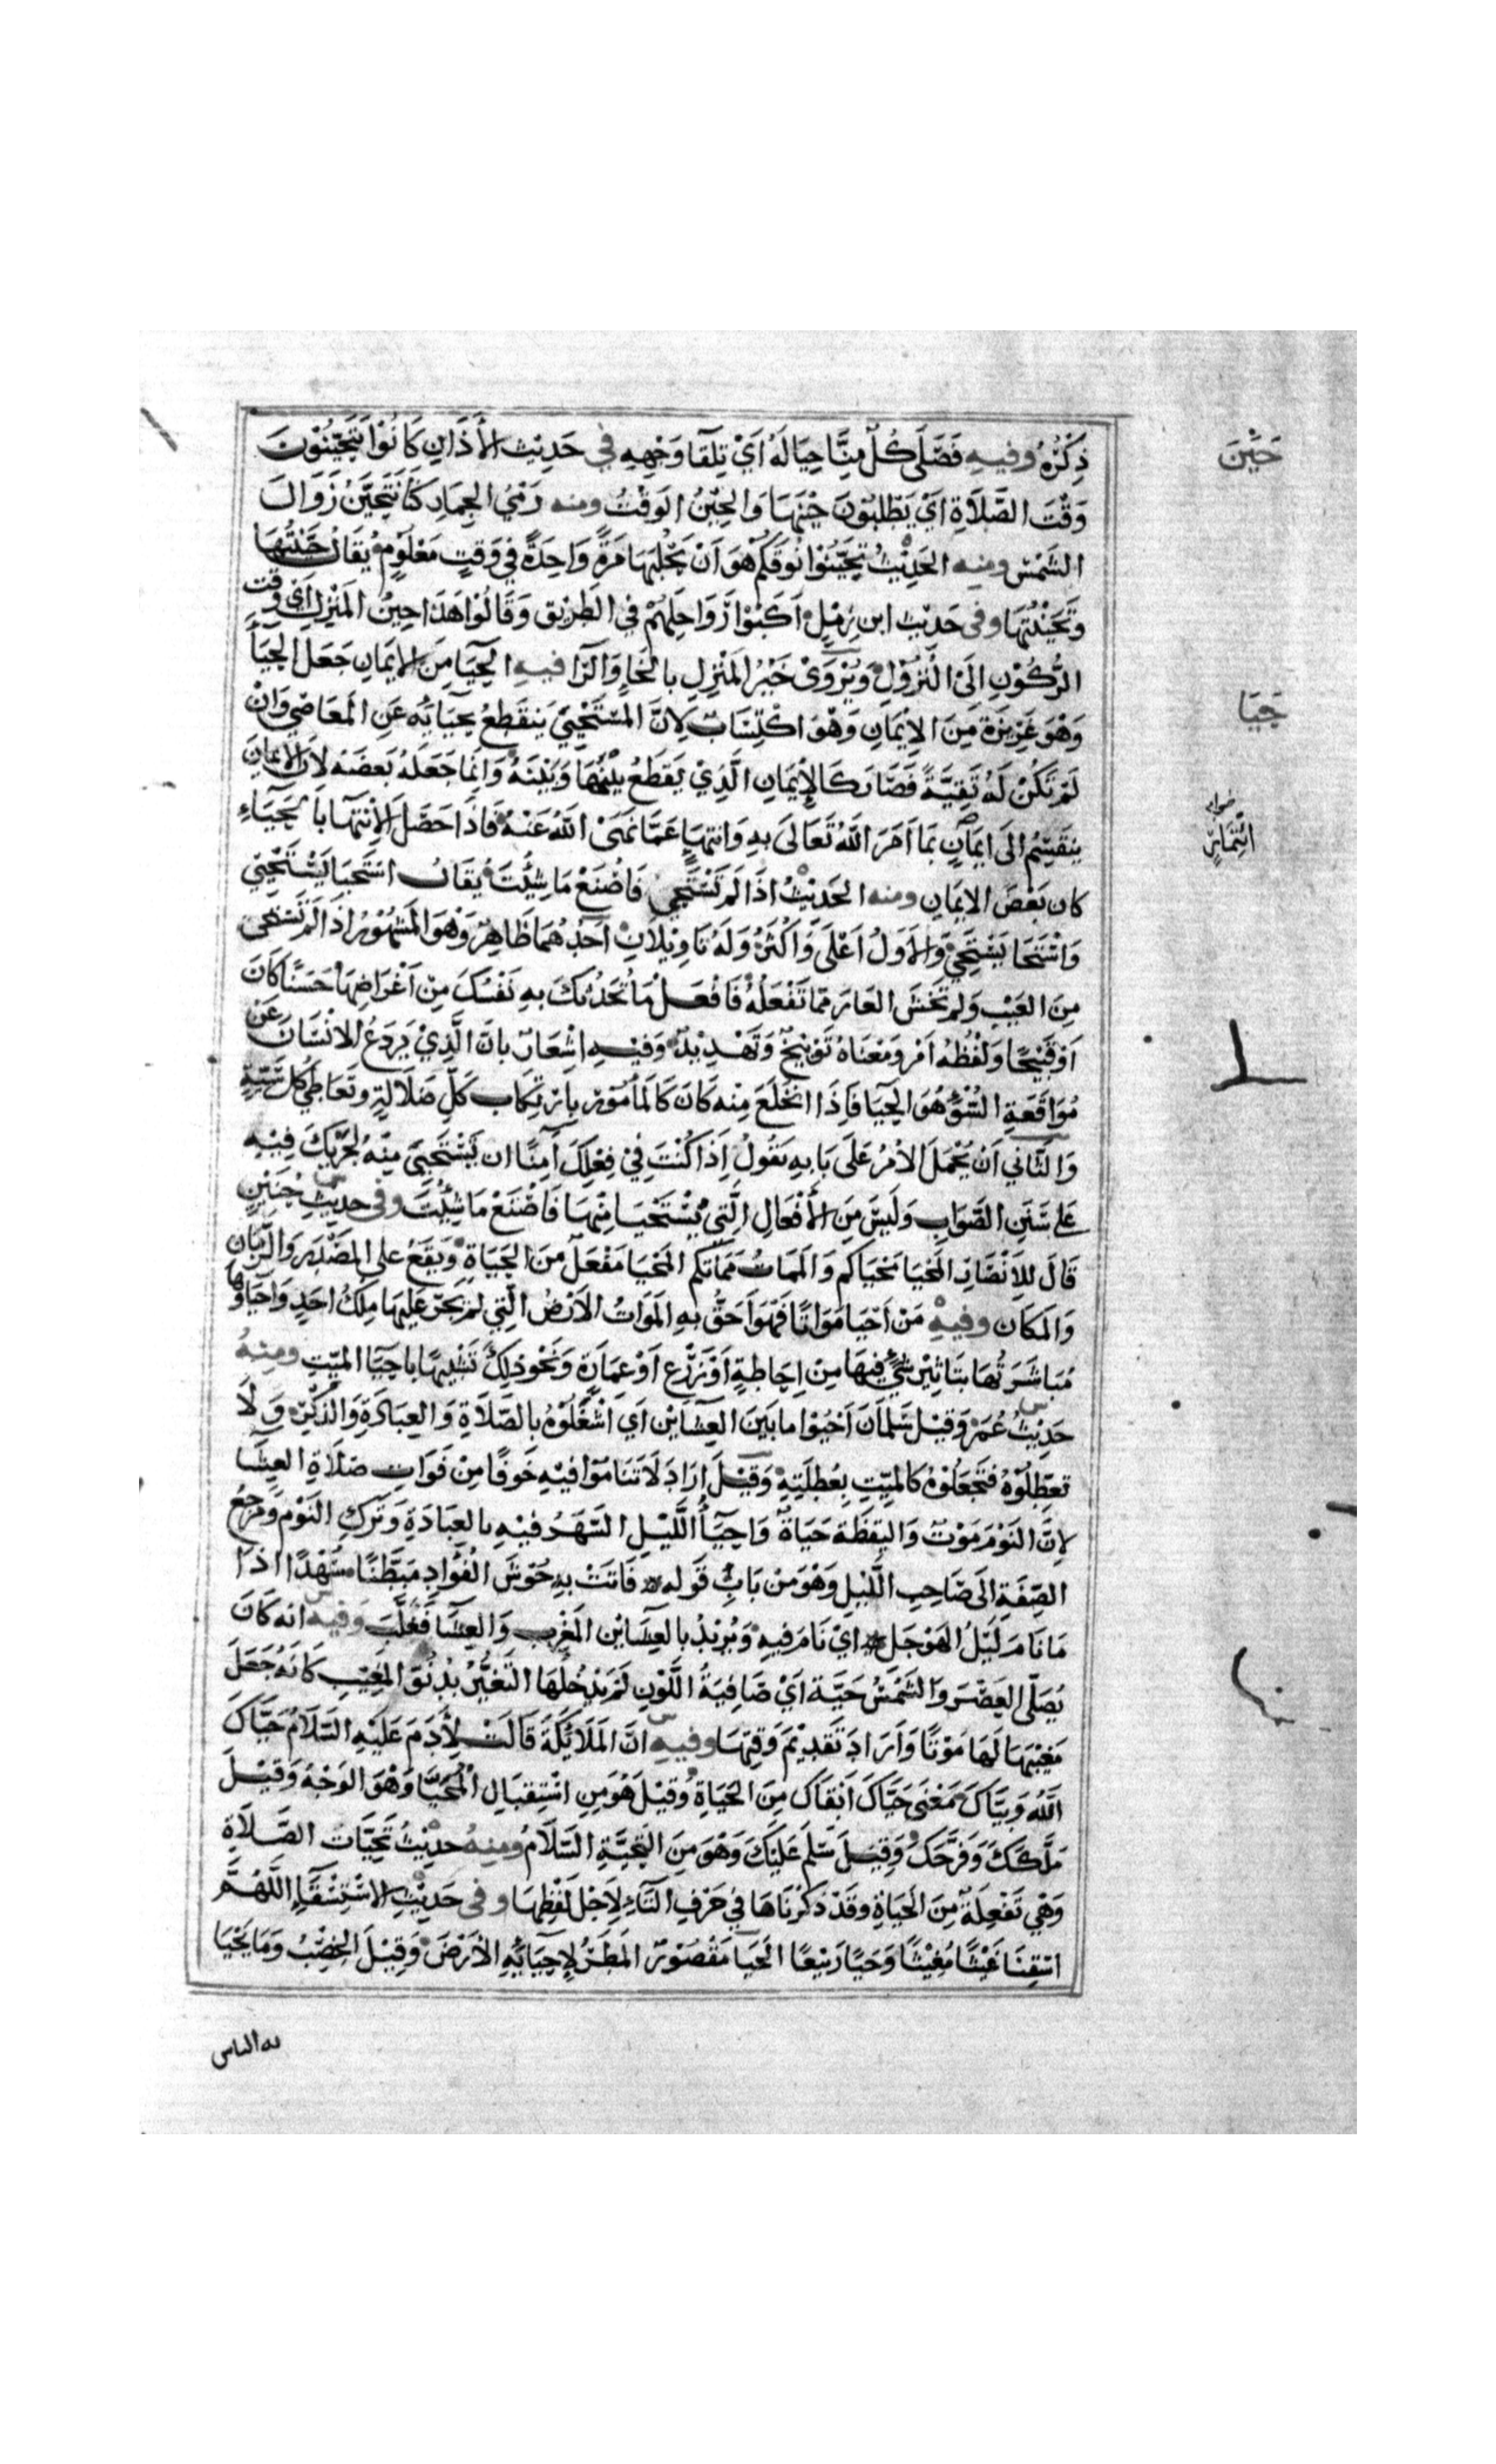 ذِكْرُهُ وفيه فَصَلَّى كُلٌّ مِنَّا حِيَالَهُ أَيْ تِلْقَا وَجْهِهِ في حَدِيْثِ الأَذَانِ كَانُوْا يَتَحَيَّنُوْنَ
حَيْنَ
وَقْتَ الصَّلَاةِ أَيْ يَطْلُبُوْنَ حِيْنَهَا وَالحِيْنُ الوَقْتُ ومنه رَمْيُ الجِمَارِ كُنَّا نَتَحَيَّنُ زَوَالَ
الشَّمْسِ ومنه الحَدِيْثُ تَحَيَّنُوْا نُوقَكُمْ هُوَ أَنْ يَحْلُبَهَا مَرَّةً وَاحِدَةً فِي وَقْتٍ مَعْلُوْمٍ يُقَالُ حَيَّنْتُهَا
وَتَحَيَّنْتُهَا وفي حَدِيْثِ ابن زِمْلٍ أَكَبُّوْا رَوَاحِلَهُمْ فِي الطَّرِيْقِ وَقَالُوْا هَذَا حِيْنُ المَنْزِلِ أَيْ وَقْتُ
الرُّكُوْنِ إِلَى النُّزُوْلِ وَيُرْوَى خَيْرُ المَنْزِلِ بِالخَاءِ وَالرَّا فيه الحَيَا مِنَ الإِيْمَانِ جَعَلَ الحَيَآ
حَيَا
وَهُوَ غَرِيْزَةٌ مِنَ الإِيْمَانِ وَهُوَ اكْتِسَابٌ لِأَنَّ المُسْتَحْيِيْ يَنْقَطِعُ بِحَيَائِهِ عَنِ المَعَاصِيْ وَإِنْ
لَمْ تَكُنْ لَهُ تَقِيَّةٌ فَصَارَ كَالإِيْمَانِ الَّذِيْ يَقْطَعُ بَيْنَهَا وَبَيْنَهُ وَإِنَّمَا جَعَلَهُ بَعْضَهُ لِأَنَّ الإِيْمَانَ
يَنْقَسِمُ إِلَى إيمَانٍ بِمَا أَمَرَ اللَّهُ تَعَالَى بِهِ وَانْتِهَاءٍ عَمَّا نَهَى اللَّهُ عَنْهُ فَإِذَا حَصَلَ الإِنْتِهَا بِالحَيَاءِ
صوابه
ائْتِمَارٍ
كان بَعْضَ الإيمَانِ ومنه الحَدِيْثُ إِذَا لَمْ تَسْتَحِي فَاصْنَعْ مَا شِئْتَ يُقَالُ اسْتَحْيَا يَسْتَحْيِيْ
وَاسْتَحَا يَسْتَحِيْ وَالأَوَّلُ أَعْلَى وَأَكْثَرُ وَلَهُ تَاوِيْلَانِ أَحَدُهُمَا ظَاهِرٌ وَهُوَ المَشْهُوْرُ إِذَا لَمْ تَسْتَحْي
مِنَ العَيْبِ وَلم تَخْشَ العَارَ مِمَّا تَفْعَلُهُ فَافْعَلْ مَا تُحَدِّثُكَ بِهِ نَفْسُكَ مِنْ أَغْرَاضِهَا حَسَنًا كَانَ
أَوْ قَبِيْحًا وَلَفْظُهُ أَمْرٌ وَمَعْنَاهُ تَوْبِيْخٌ وَتَهْدِيْدٌ وَفِيْهِ إِشْعَارٌ بِأَنَّ الَّذِيْ يَرْدَعُ الإنْسَانَ عَنْ
مُوَاقَعَةِ السُّوْءِ هُوَ الحَيَا فَإِذَا انْخَلَعَ مِنْه كَانَ كَالمَأْمُوْرِ بِارْتِكَابِ كُلِّ ضَلَالَةٍ وتَعَاطِي كُلِّ سَيِّئَةٍ
وَالثَّانِي أَنْ يُحْمَلَ الأَمْرُ عَلَى بَابِهِ يَقُولُ إِذَا كُنْتَ فِيْ فِعْلِكَ آمِنًا ان يُسْتَحْيَى مِنْهُ لِجَرْيِكَ فِيْهِ
عَلى سَنَنِ الصَّوَابِ وَلَيْسَ مِنَ الأَفْعَالِ الَّتِي يُسْتَحْيَا مِنْهَا فَاصْنَعْ مَا شِئْتَ وفي حَدِيْثِ حُنَيْنٍ
قَالَ لِلأَنْصَارِ المَحْيَا مَحْيَاكم وَالمَمَاتُ مَمَاتُكم المَحْيَا مَفْعَلٌ مِنَ الحَيَاةِ وَيَقَعُ على المَصْدَرِ وَالزَّمَانِ
وَالمَكَان وفيه مَنْ أَحْيَا مَوَاتًا فَهُوَ أَحَقُّ بِهِ المَوَاتُ الأَرْضُ الَّتِي لَمْ يَجْرِ عَلَيْهَا مِلْكُ أَحَدٍ وَإِحْيَاؤُهَا
مُبَاشَرَتُهَا بِتَاثِيْرِ شَيْءٍ فِيْهَا مِنْ إِحَاطَةٍ أَوْ زَرْعٍ أَوْ عِمَارَةٍ وَنَحْوِ ذَلِكَ تَشْبِيْهًا بِإِحْيَا المَيِّتِ ومنهُ
حَدِيْثُ عُمَرَ وَقِيْلَ سَلْمَانَ أَحْيُوْا مَا بَيْنَ العِشَائَيْنِ أَي اشْغَلُوْهُ بِالصَّلَاةِ وَالعِبَادَةِ وَالذِّكْرِ وَلَا
تُعَطِّلُوْهُ فَتَجْعَلُوْهُ كَالمَيِّتِ بِعُطْلَتِهِ وَقِيْلَ أَرَادَ لَا تَنَامُوْا فِيْهِ خَوفًا مِنْ فَوَاتِ صَلَاةِ العِشَا
لِأَنَّ النَّوْمَ مَوْتٌ وَاليَقَظَةَ حَيَاةٌ وَإِحْيَآءُ اللَّيْلِ السَّهَرُ فِيْهِ بِالعِبَادَةِ وَتَرْكِ النَّوْمِ وَمَرْجِعُ
الصِّفَةِ إِلَى صَاحِبِ اللَّيْلِ وَهُوَ مِنْ بَابِ قَوْلِهِ فَأَتَتْ بِهِ حُوْشَ الفُؤَادِ مُبَطَّنًا سُهُدًا إذَا
مَا نَامَ لَيْلُ الهَوْجَلِ أَيْ نَامَ فِيهِ وَيُرِيْدُ بِالعِشَائَيْنِ المَغْرِبَ وَالعِشَا فَغَلَّبَ وَفيه انه كَانَ
يُصَلِّي العَصْرَ وَالشَّمْسُ حَيَّةٌ أَيْ صَافِيَةُ اللَّوْنِ لَمْ يَدْخُلْهَا التَّغَيُّرُ بِدُنُوِّ المَغِيْبِ كَأَنَّهُ جَعَلَ
مَغِيْبَهَا لَهَا مَوْتًا وَأَرَادَ تَقْدِيْمَ وَقْتِهَا وفيه انَّ المَلَائِكَةَ قَالَتْ لِأَدَمَ عَلَيْهِ السَّلَامُ حَيَّاكَ
اللَّهُ وَبَيَّاكَ مَعْنَى حَيَّاكَ أَبْقَاكَ مِنَ الحَيَاةِ وَقِيْلَ هُوَ مِنِ اسْتِقْبَالِ المُحَيَّا وَهُوَ الوَجْهُ وَقِيْلَ
مَلَّكَكَ وَفَرَّحَكَ وَقِيْلَ سَلَّمَ عَلَيْكَ وَهُوَ مِنَ التَّحِيَّةِ السَّلَامُ ومِنهُ حَدِيْثُ تَحِيَّاتُ الصَّلَاةِ
وَهْيَ تَفْعِلَةٌ مِنَ الحَيَاةِ وقَدْ ذَكَرْنَاهَا فِيْ حَرْفِ التَّاءِ لِأَجْلِ لَفْظِهَا وفي حَدِيْثِ الاسْتِسْقَاءِ اللَّهُمَّ
اسْقِنَا غَيْثًا مُغِيْثًا وَحَيًا رَبِيْعًا الحَيَا مَقْصُوْرٌ المَطَرُ لِإِحْيَائِهِ الأَرْضَ وَقِيْلَ الخِصْبُ وَمَا يَحْيَا
به الناس